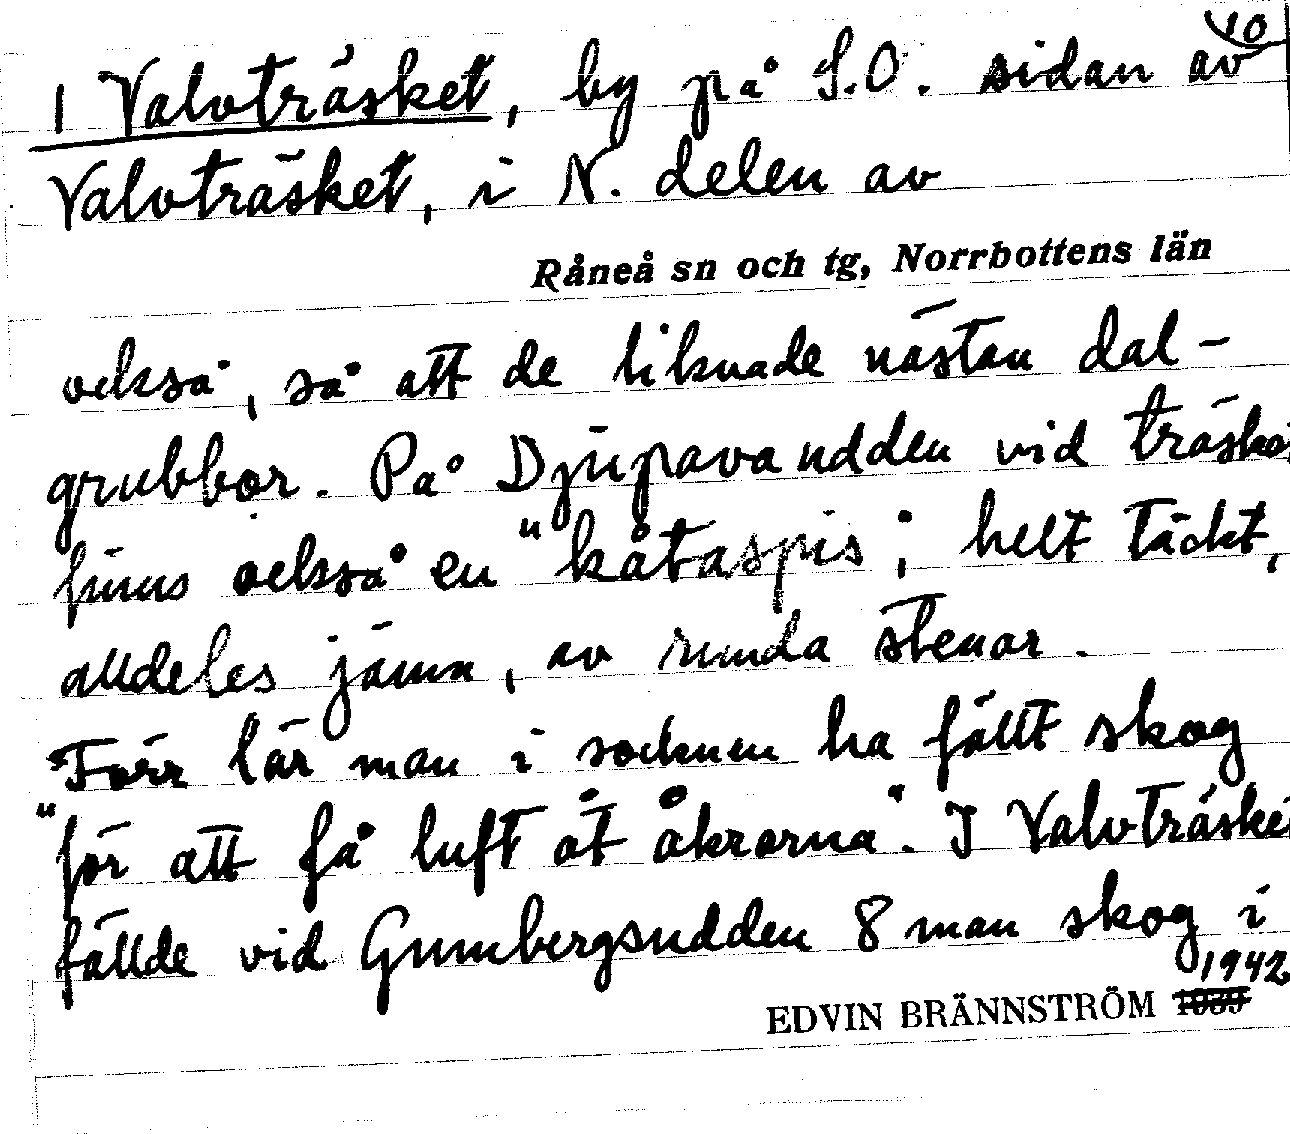 10
1 Valvträsket, by på S.O. sidan av
Valvträsket, i N. delen av
Råneå sn och tg, Norrbottens län
också, så att de liknade nästan dal-
grubbor. På Djupavaudden vid träsket
finns också en "kåtaspis", helt täckt,
alldeles jämn, av runda stenar.
Förr lär man i socknen ha fällt skog
"för att få luft åt åkrarna". I Valvträsket
fällde vid Gumbergsudden 8 man skog i
EDVIN BRÄNNSTRÖM 1942